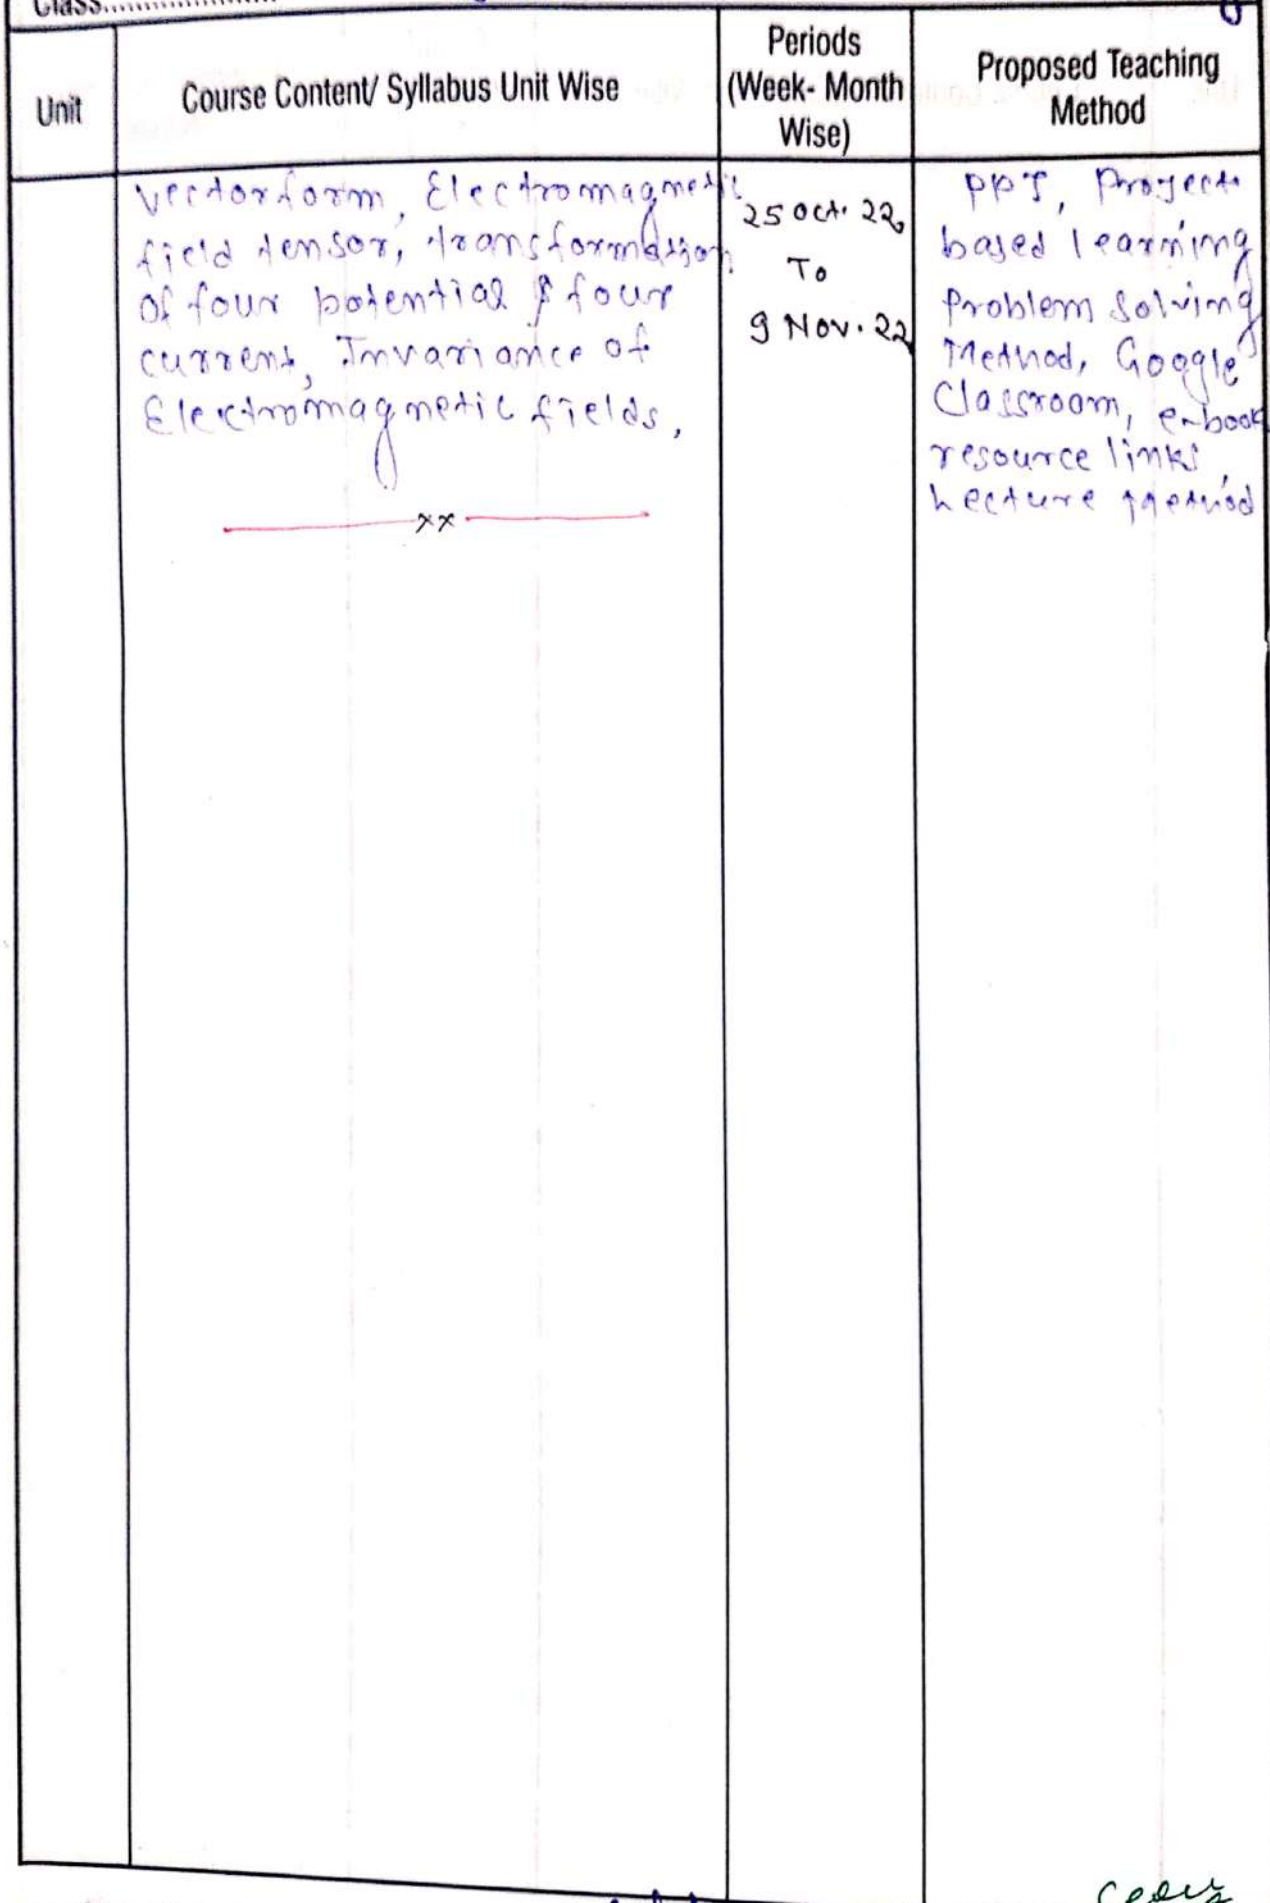 Class....................
Unit
Course Content/ Syllabus Unit Wise
Periods
(Week- Month
Wise)
Proposed Teaching
Method
vector form, Electromagnetic
field tensor, transformation
of four potential & four
current, Invariance of
Electromagnetic fields,
xx
25 Oct. 22,
To
9 Nov. 22
PPT, Project
based learning
Problem Solving
Method, Google
Classroom, e-book
resource links,
Lecture Method